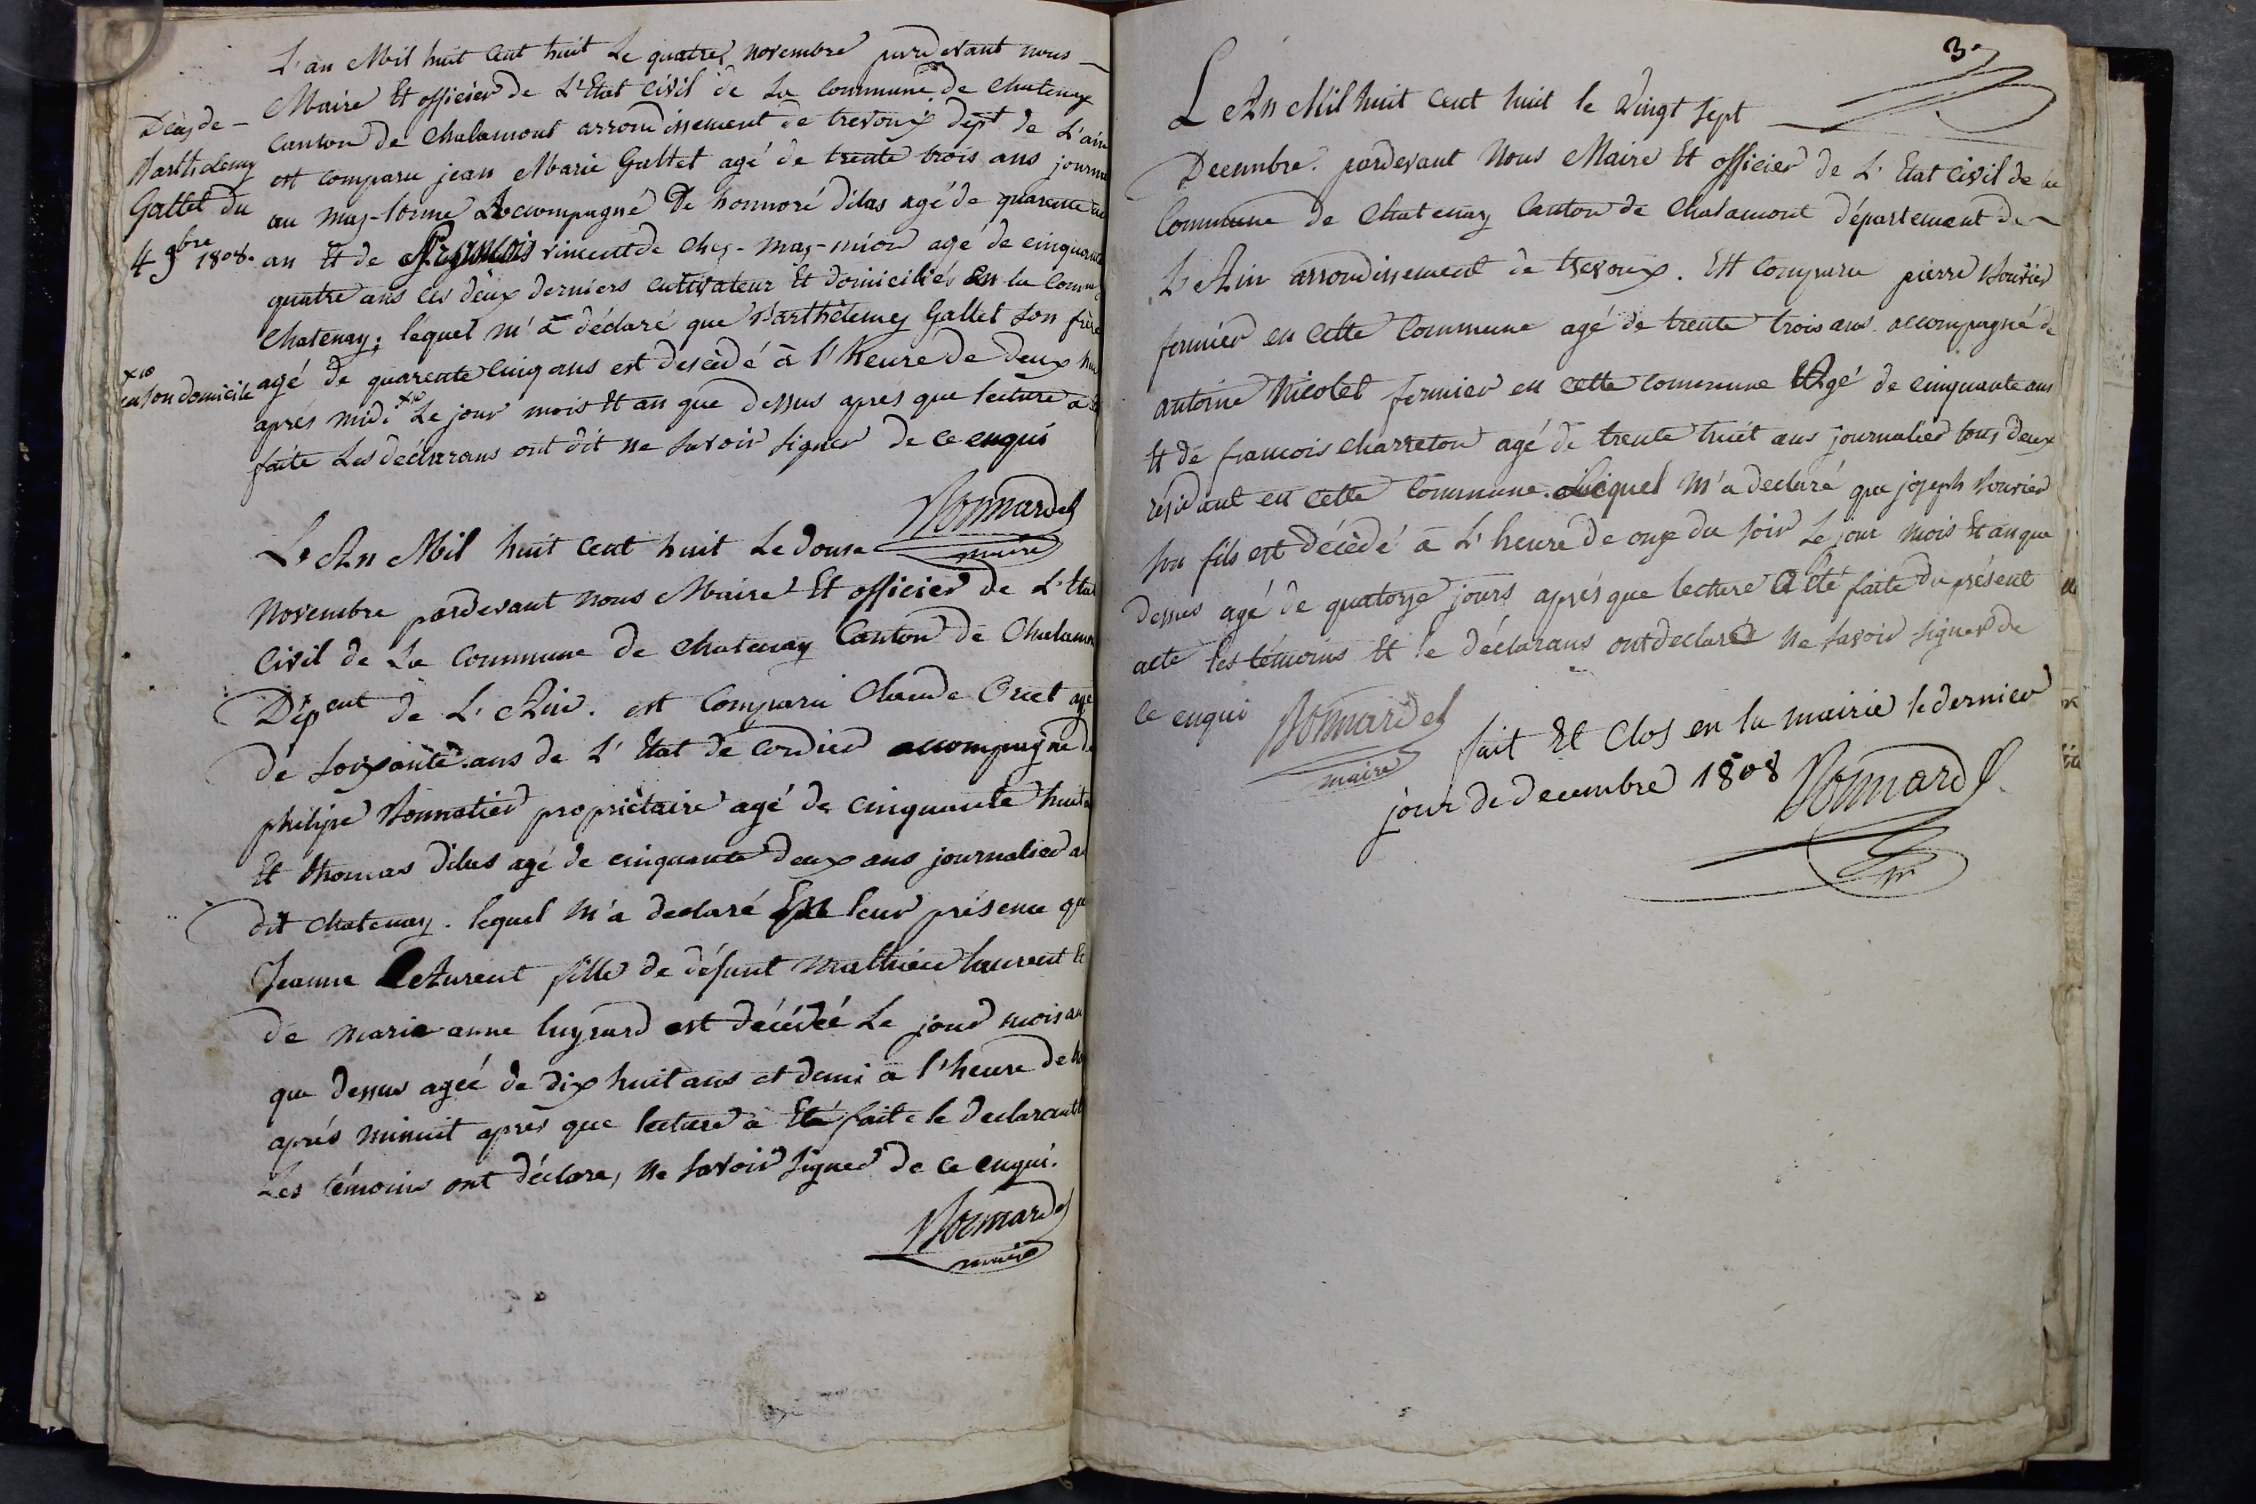 L'an Mil huit Cent huit Le quatre novembre pardevant nous
Maire Et officier de L'Etat Civil de La Commune de Chatenay
Canton de Chalamont arrondissement de trevoux dept de L'ain
est comparu jean Marie Gallet agé de trente trois ans journ
au mas-lorme Accompagné De honnoré dilas agé de quarante
an Et de François vincent de Chez-mas-mion agé de cinquante
quatre ans les deux derniers cultivateur Et domiciliés En la Comm
Chatenay; lequel m'à déclaré que Barthelemy Gallet son frère
agé de quarente Cinq ans est descédé à l'heure de deux
après midi Le jour mois Et an que dessus après que lecture a
faite Les déclarans ont dit ne savoir signer de ce enqui
Décès de
Barthelemy
Gallet du
4 9bre 1808.
en son domicile
Bonnardel
maire
L'An Mil huit Cent huit Le douse
Novembre pardevant nous Maire Et officier de L'Etat
Civil de La Commune de Chatenay Canton de Chalamon
Dépent de L'Ain. est Comparu Claude Cruet agé
de soixante ans de L'Etat de Cordier accompagné de
philipe Bonnatier propriétaire agé de cinquante huit
Et thomas dilas agé de cinquante deux ans journalier a
dit Chatenay. lequel M'a declaré En leur présence que
Jeanne LeAurent fille de défunt Mathieu laurent Et
de Marie anne luysard est décédée Le jour mois an
que dessus ageé de dix huit ans et demi à l'heure de
après minuit après que lecture à Eté faite le declarant
Les témoins ont déclare, ne savoir signer de ce enqui.
Bonnardel
maire
3
L'An Mil huit Cent huit le Vingt sept
Decembre. pardevant Nous Maire Et officier de L'Etat Civil de la
Commune de Chatenay Canton de Chalamont département de
L'Ain arrondissement de trevoux. Est Comparu pierre Bouvier
fermier en cette Commune agé de trente trois ans accompagné de
antoine Nicolet fermier en cette commune Agé de cinquante ans
Et de francois charreton agé de trente huit ans journalier tous deux
résidant en cette Commune. Lequel M'a declaré que joseph bouvier
son fils est décèdé à L'heure de onze du soir Le jour mois Et an que
dessus agé de quatorze jours après que lecture a Eté faite du présent
acte les témoins Et le déclarans ont declaré ne savoir signer de
ce enqui
Bonnardel
maire
fait Et Clos en la mairie le dernier
jour de decembre 1808
Bonnardel